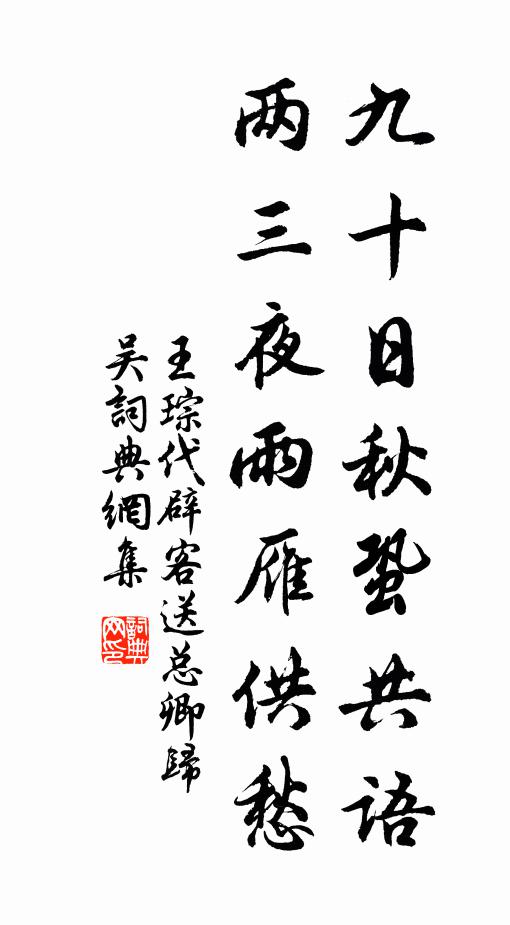 九十日秋蛩共语
两三夜雨雁供愁
王琮代辟客送总卿歸
吴詞典網集
詞典网印